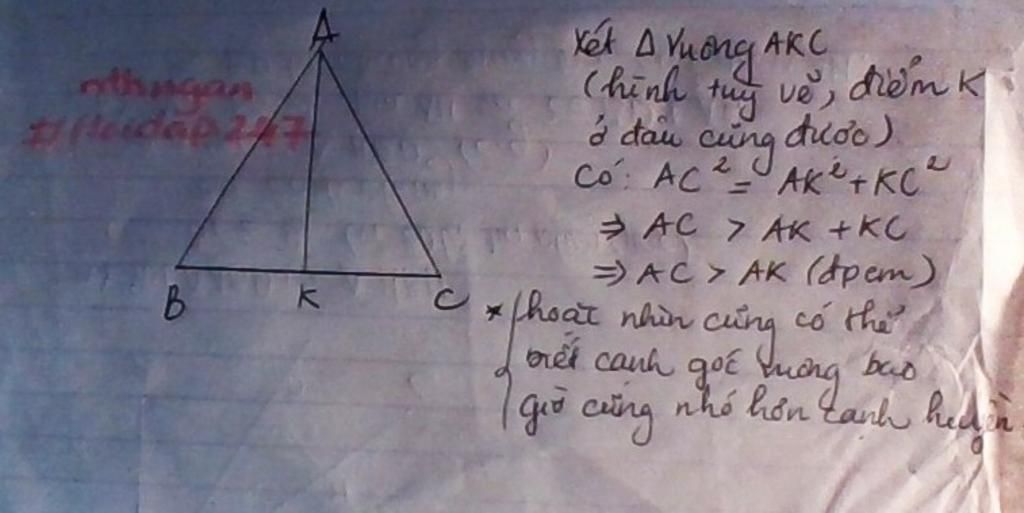 A
nthngan
Hoidap247
B K C
Xét Δ Vuông AKC
(hình tuỳ vẽ, điểm K
ở đâu cũng được)
Có: AC² = AK² + KC²
⇒ AC > AK + KC
⇒ AC > AK (đpcm)
* hoặc nhìn cũng có thể
biết cạnh góc vuông bao
giờ cũng nhỏ hơn cạnh huyền